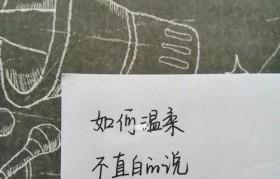 如何温柔
不直白的说